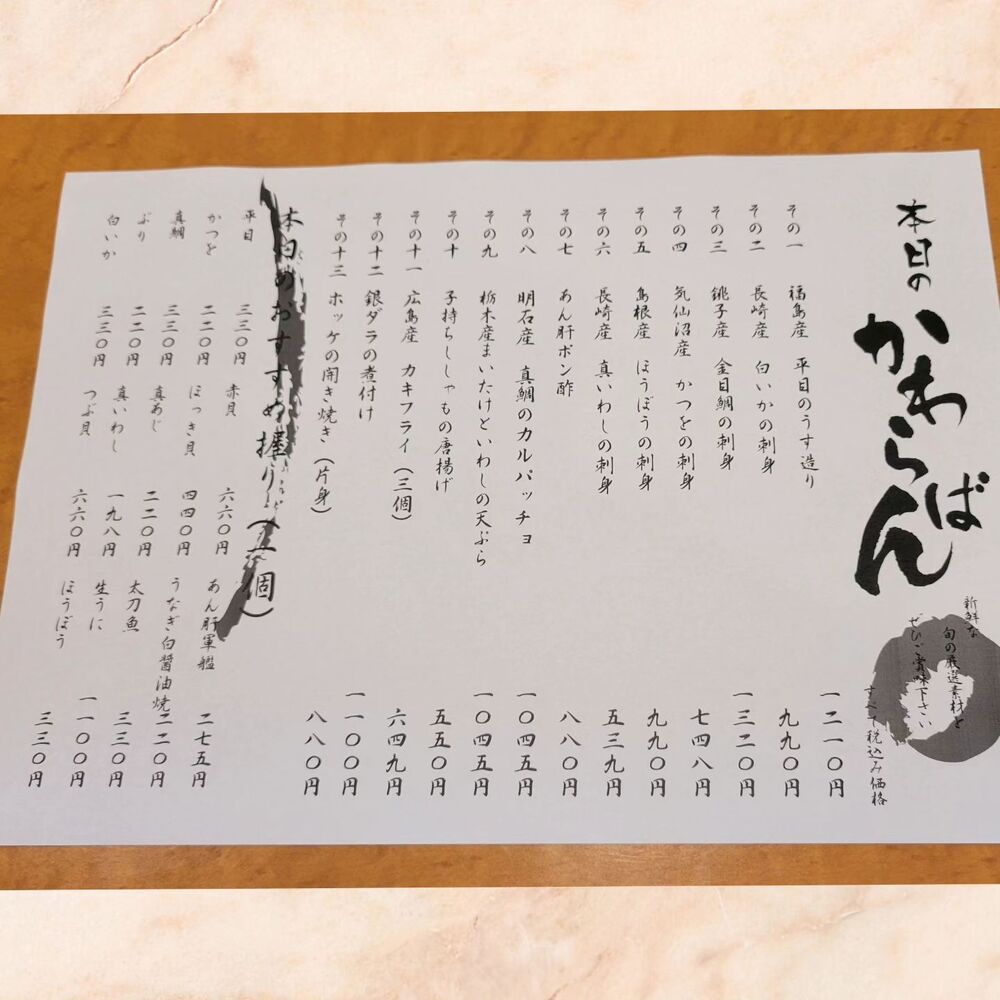 本日の
かわらばん
新鮮な
旬の厳選素材を
ぜひご賞味下さい
すべて税込み価格
その一 福島産 平目のうす造り 一二一〇円
その二 長崎産 白いかの刺身 九九〇円
その三 銚子産 金目鯛の刺身 一三二〇円
その四 気仙沼産 かつをの刺身 七四八円
その五 島根産 ほうぼうの刺身 九九〇円
その六 長崎産 真いわしの刺身 五三九円
その七 あん肝ポン酢 八八〇円
その八 明石産 真鯛のカルパッチョ 一〇四五円
その九 栃木産まいたけといわしの天ぷら 一〇四五円
その十 子持ちししゃもの唐揚げ 五五〇円
その十一 広島産 カキフライ（三個） 六四九円
その十二 銀ダラの煮付け 一一〇〇円
その十三 ホッケの開き焼き（片身） 八八〇円
本日のおすすめ握り（一個）
平目 三三〇円
かつを 二二〇円
真鯛 三三〇円
ぶり 二二〇円
白いか 三三〇円
赤貝 六六〇円
ほっき貝 四四〇円
真あじ 二二〇円
真いわし 一九八円
つぶ貝 六六〇円
あん肝軍艦 二七五円
うなぎ白醤油焼 二二〇円
太刀魚 三三〇円
生うに 一一〇〇円
ほうぼう 三三〇円